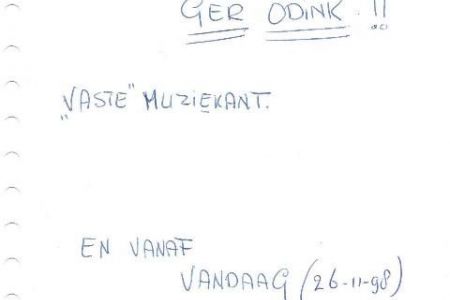 GER ODINK !!
„VASTE" MUZIEKANT.
EN VANAF
VANDAAG (26-11-98)